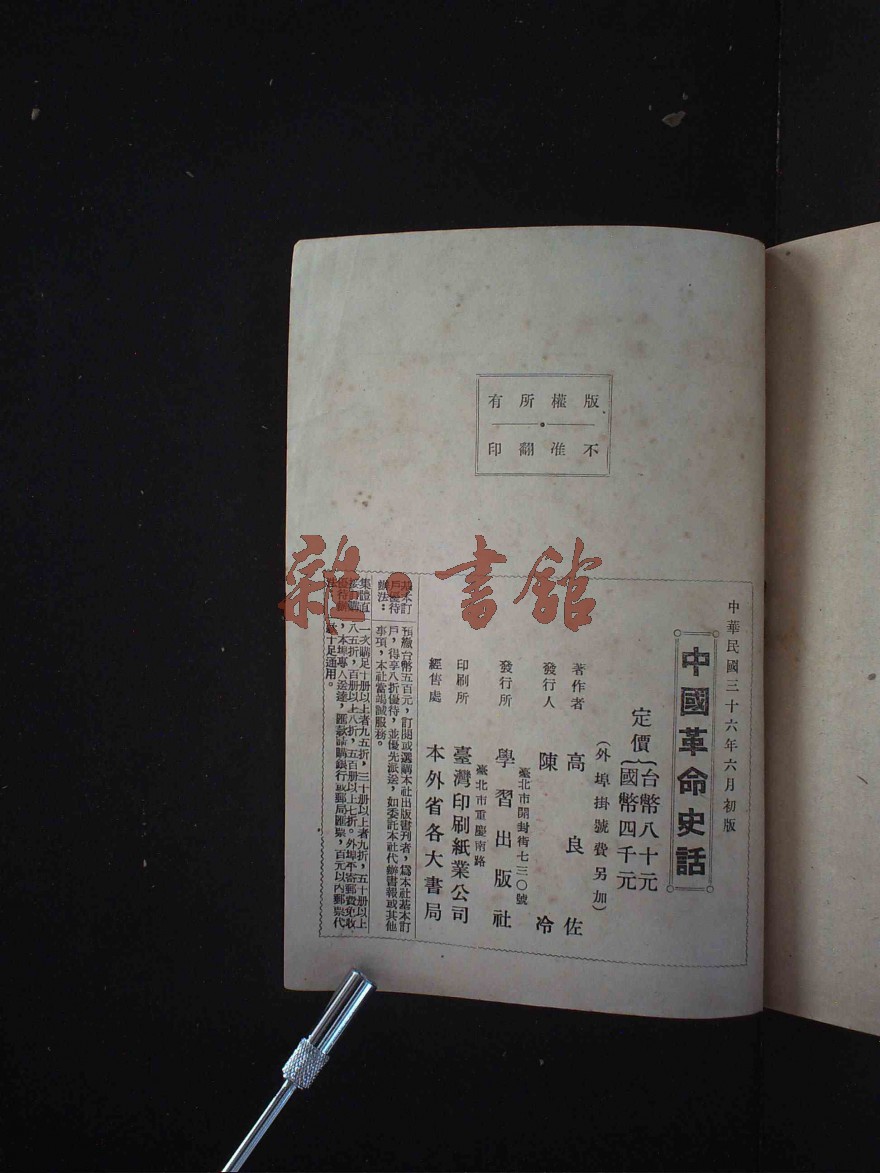 版權所有
不准翻印
中華民國三十六年六月初版
中國革命史話
定價{台幣八十元
國幣四千元
(外埠掛號費另加)
著作者 高良佐
發行人 陳冷
臺北市開封街七三〇號
發行所 學習出版社
臺北市重慶南路
印刷所 臺灣印刷紙業公司
經售處 本外省各大書局
基本訂戶優待辦法:
預繳台幣五百元,訂閱或選購本社出版書刊者,爲本社基本訂戶,得享八折優待,並優先派送,如委託本社代辦書報或其他事項,本社當竭誠服務。
一次購足十册以上者九五折,三十册以上者九折,五十册以上八五折,百册以上八折,五百册以上七折。外埠函寄郵費免收,本埠專人送達,匯款請購銀行或郵局匯票,百元以內郵票代款十足通用。
雜·書館